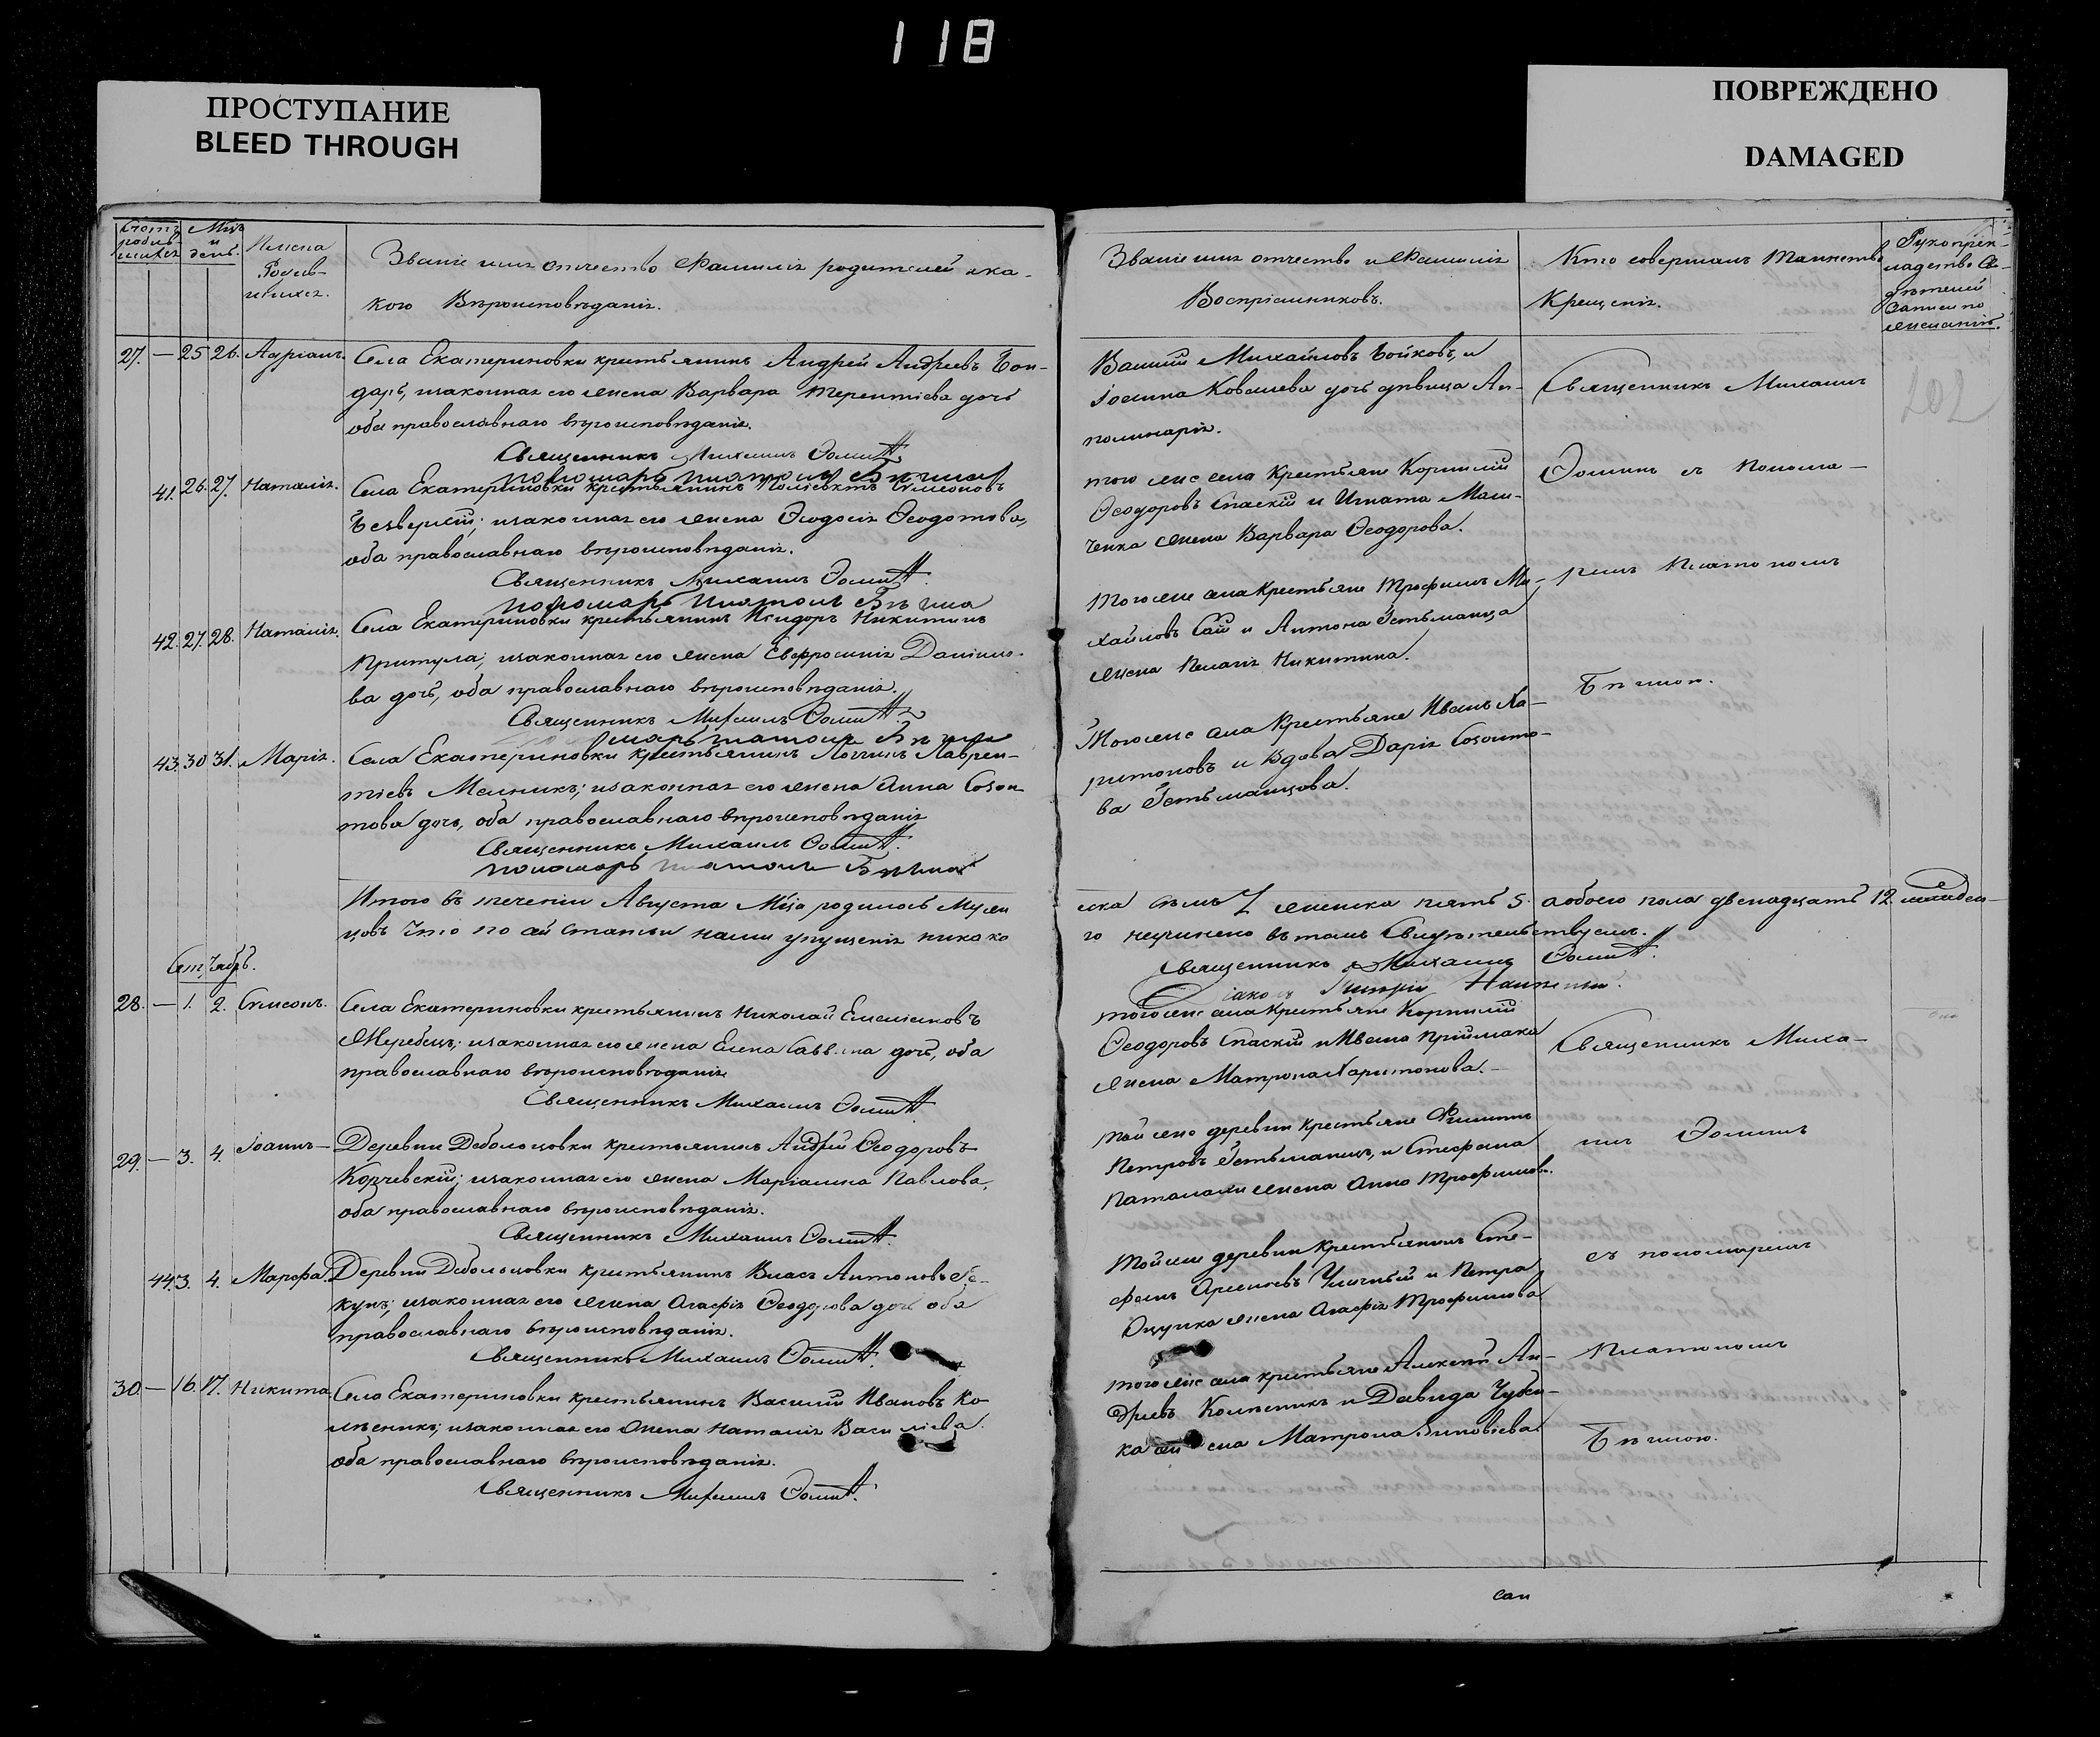 118
ПРОСТУПАНИЕ
BLEED THROUGH
ПОВРЕЖДЕНО
DAMAGED
Счетъ родив-шихся
Мцъ и день.
Имена Родив-шихся.
Званіе имя отчество Фамилія родителей и ка-
кого Вѣроисповѣданія.
27. — 25 26. Адріанъ.
Села Екатериновки крестьянинъ Андрей Андреевъ Бон-
дарь, изаконная его жена Варвара Терентіева дочь
оба православнаго вѣроисповѣданія.
Священникъ Михаилъ Ѳомин
пономарь Платонъ Бѣлина
41. 26. 27. Наталія.
Села Екатериновки крестьянинъ Симеоновъ
изаконная его жена Ѳеодосія Ѳеодотова,
оба православнаго вѣроисповѣданія.
Священникъ Михаилъ Ѳомин
пономарь Платонъ Бѣлина
42. 27. 28. Наталія.
Села Екатериновки крестьянинъ Исидоръ Никитинъ
Притула; изаконная его жена Евфросинія Даніило-
ва дочь, оба православнаго вѣроисповѣданія.
Священникъ Михаилъ Ѳомин
Платонъ
43. 30 31. Марія.
Села Екатериновки крестьянинъ Логгинъ Лаврен-
тіевъ Мельникъ; изаконная его жена Анна Созон
това дочь, оба православнаго вѣроисповѣданія
Священникъ Михаилъ Ѳомин
пономарь Платонъ Бѣлина
Итого въ теченіи Августа Мца родилось Муже
цовъ Что по ей Статьи нами упущенія никако
Сентябрь.
28. — 1. 2. Симеонъ.
Села Екатериновки крестьянинъ Николай Емеліановъ
Жеребецъ; изаконная его жена Елена Саввина дочь, оба
православнаго вѣроисповѣданія
Священникъ Михаилъ Ѳомин
29. — 3. 4. Іоаннъ —
Деревни Дебольцовки крестьянинъ Андрей Ѳеодоровъ
Корчевскій; изаконная его жена Маріанна Павлова,
оба православнаго вѣроисповѣданія.
Священникъ Михаилъ Ѳомин
44. 3. 4. Марѳа.
Деревни Дебольцовки крестьянинъ Власъ Антоновъ
изаконная его жена Агафія Ѳеодорова дочь оба
православнаго вѣроисповѣданія.
Священникъ Михаилъ Ѳомин
30. — 16. 17. Никита
Села Екатериновки крестьянинъ Василій Ивановъ Ко
лѣсникъ; изаконная его жена Наталія Василіева
оба православнаго вѣроисповѣданія.
Священникъ Михаилъ Ѳомин
Званіе имя отчество и Фамилія
Воспріемниковъ.
Кто совершалъ Таинство
Крещенія.
Рукоприк-
ладство Св-
дѣтелей
Записи по
желанію.
202
Василій Михайловъ Бойковъ, и
Іоанна Ковалева дочь дѣвица Ап-
полинарія.
того же села Крестьяне Корнилій
Ѳеодоровъ Спаскій и Игната
жена Варвара Ѳеодорова.
Тогоже села Крестьяне Трофимъ Ми-
хайловъ Сай и Антона Гетьманца
жена Пелагія Никитина.
Тогоже села Крестьяне Иванъ Ха-
ритоновъ и Вдова Дарія Созонто-
ва Гетьманцова.
Священникъ Михаилъ
Ѳоминъ съ Понома-
ремъ Платономъ
Бѣлиною.
ска семь 7 женска пять 5. а обоего пола двенадцать 12. младен-
го неучинено въ томъ Свидѣтельствуемъ.
Священникъ Михаилъ Ѳомин
Діаконъ
тогоже села Крестьяне Корнилій
Ѳеодоровъ Спаскій и Ивана Приймака
жена Матрона Харитонова. —
той же деревни Крестьяне Филиппъ
Петровъ Гетьманецъ, и Стефана
жена Анна Трофимова.
Той же деревни Крестьянинъ Сте-
фанъ и Петра
Оцупка жена Агафія Трофимова
того же села крестьяне Алексѣй Ан-
дреевъ Колѣсникъ и Давида
жена Матрона Зиновіева
Священникъ Миха-
илъ Ѳоминъ
съ пономаремъ
Платономъ
Бѣлиною.
сан